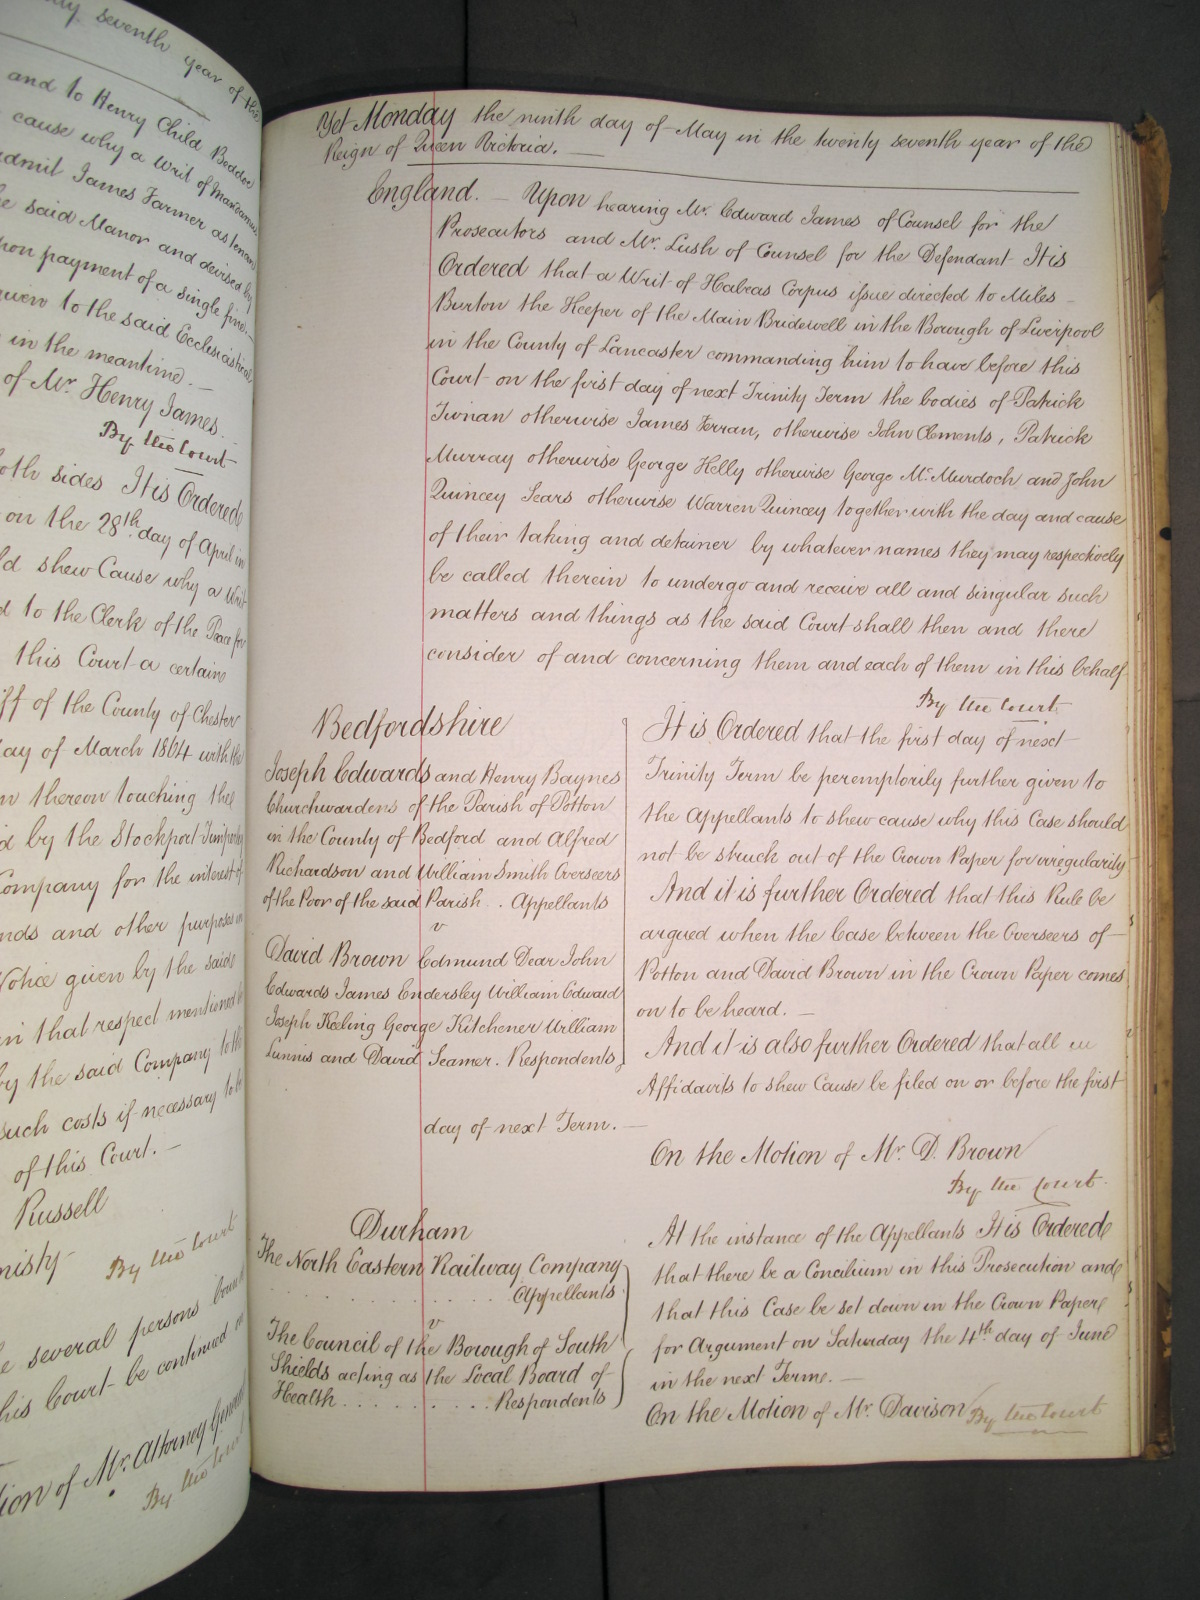 ty seventh year of the
and to Henry Child Beddoe
cause why a Writ of Mandamus
admit James Farmer as tenant
e said Manor and devised by
upon payment of a single fine
given to the said Ecclesiastical
in the meantime. —
of Mr. Henry James.
By the Court
oth sides It is Ordered
on the 28th day of April in
ld shew Cause why a Writ
d to the Clerk of the Peace for
this Court a certain
iff of the County of Chester
day of March 1864 with the
n thereon touching the
d by the Stockport Timperley
Company for the interest of
nds and other purposes in
Notice given by the said
in that respect mentioned
by the said Company to the
such costs if necessary to be
of this Court. —
Russell
misty
By the Court
e several persons bound
his Court be continued
tion of Mr. Attorney General
By the Court
Yet Monday the ninth day of May in the twenty seventh year of the
Reign of Queen Victoria. —
England. — Upon hearing Mr. Edward James of Counsel for the
Prosecutors and Mr. Lush of Counsel for the Defendant It is
Ordered that a Writ of Habeas Corpus issue directed to Miles
Burton the Keeper of the Main Bridewell in the Borough of Liverpool
in the County of Lancaster commanding him to have before this
Court on the first day of next Trinity Term the bodies of Patrick
Tivnan otherwise James Ferran, otherwise John Clements, Patrick
Murray otherwise George Kelly otherwise George McMurdoch and John
Quincey Sears otherwise Warren Quincey together with the day and cause
of their taking and detainer by whatever names they may respectively
be called therein to undergo and receive all and singular such
matters and things as the said Court shall then and there
consider of and concerning them and each of them in this behalf
By the Court
Bedfordshire
Joseph Edwards and Henry Baynes
Churchwardens of the Parish of Potton
in the County of Bedford and Alfred
Richardson and William Smith Overseers
of the Poor of the said Parish . . Appellants
v
David Brown Edmund Dear John
Edwards James Endersley William Edward
Joseph Keeling George Kitchener William
Lunnis and David Seamer. Respondents
It is Ordered that the first day of next
Trinity Term be peremptorily further given to
the Appellants to shew cause why this Case should
not be struck out of the Crown Paper for irregularity
And it is further Ordered that this Rule be
argued when the Case between the Overseers of
Potton and David Brown in the Crown Paper comes
on to be heard. —
And it is also further Ordered that all
Affidavits to shew Cause be filed on or before the first
day of next Term. —
On the Motion of Mr. D. Brown
By the Court.
Durham
The North Eastern Railway Company
. . . . . . . . . . . . . . Appellants
v
The Council of the Borough of South
Shields acting as the Local Board of
Health . . . . . . . . . Respondents
At the instance of the Appellants It is Ordered
that there be a Concilium in this Prosecution and
that this Case be set down in the Crown Paper
for Argument on Saturday the 4th day of June
in the next Term. —
On the Motion of Mr. Davison By the Court